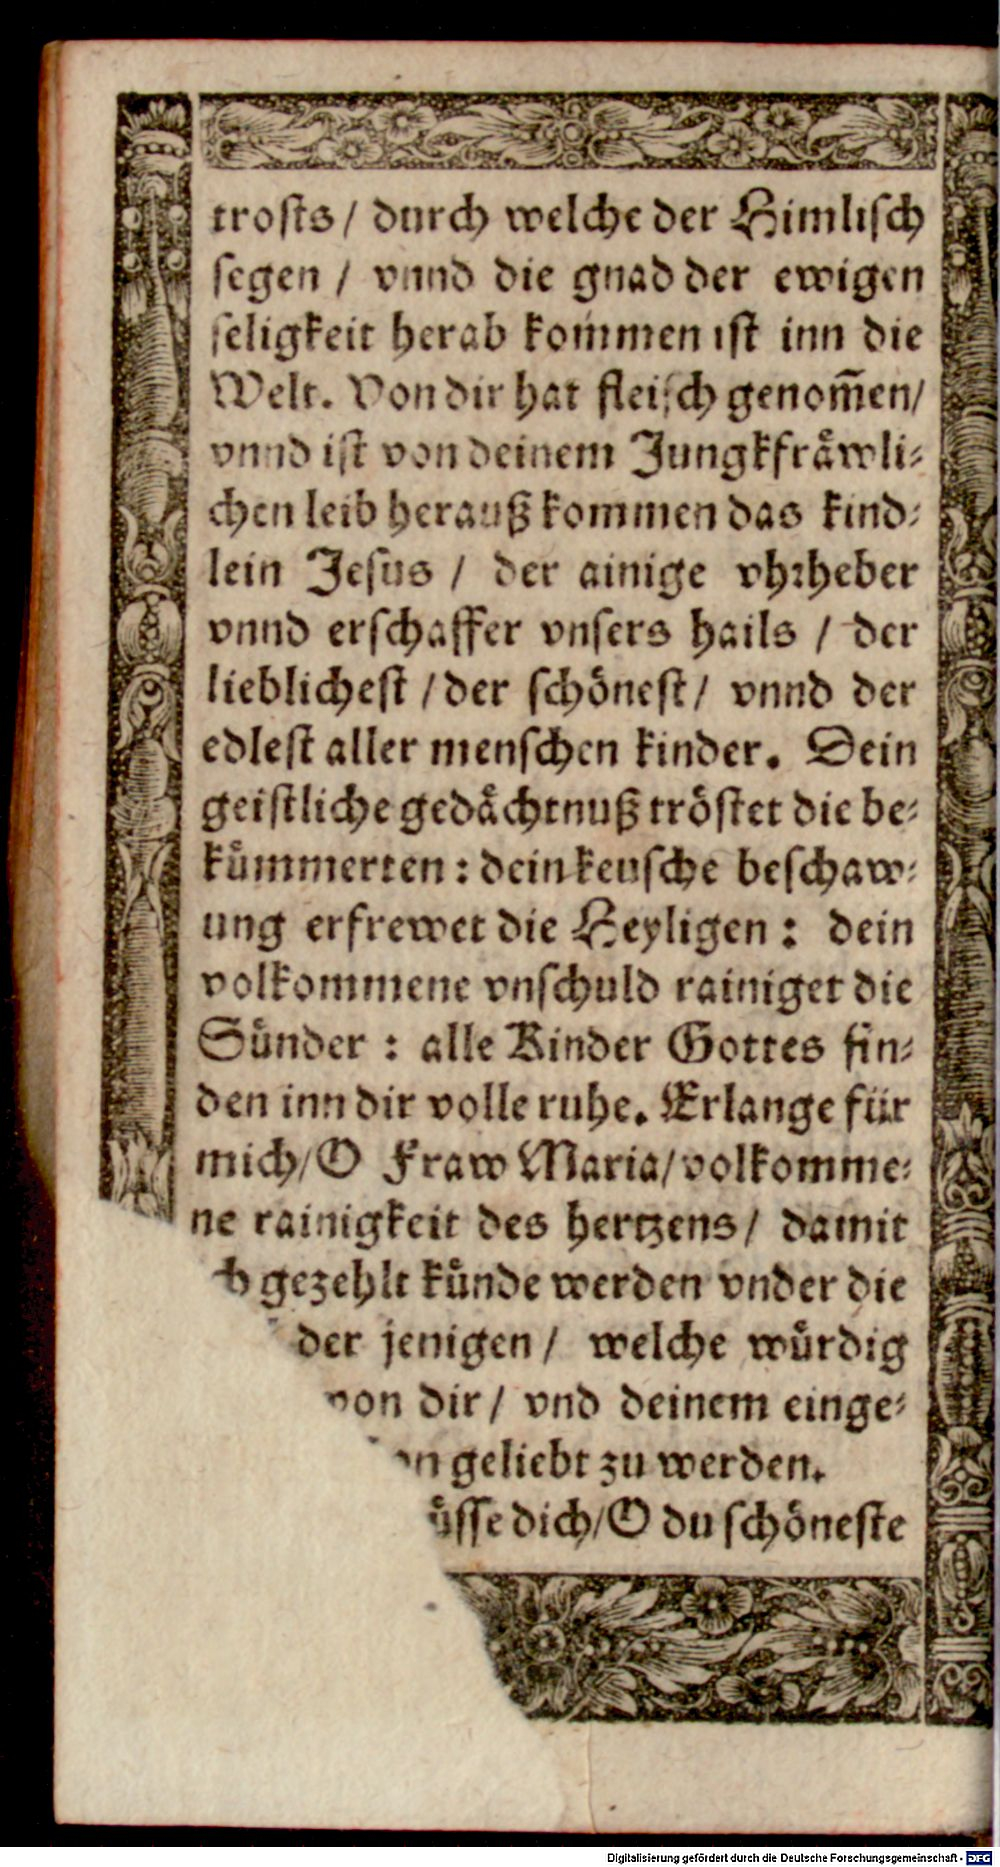 trosts / durch welche der Himlisch
segen / vnnd die gnad der ewigen
seligkeit herab kommen ist inn die
Welt. Von dir hat fleisch genom̃en/
vnnd ist von deinem Jungkfraͤwli-
chen leib herauß kommen das kind-
lein Jesus / der ainige vhrheber
vnnd erschaffer vnsers hails / der
lieblichest / der schoͤnest / vnnd der
edlest aller menschen kinder. Dein
geistliche gedaͤchtnuß troͤstet die be-
kuͤmmerten : dein keusche beschaw-
ung erfrewet die Heyligen : dein
volkommene vnschuld rainiget die
Suͤnder : alle Kinder Gottes fin-
den inn dir volle ruhe. Erlange für
mich/ O Fraw Maria/ volkomme-
ne rainigkeit des hertzens / damit
gezehlt kuͤnde werden vnder die
der jenigen / welche wuͤrdig
von dir / vnd deinem einge-
geliebt zu werden.
uͤsse dich/ O du schoͤneste
Digitalisierung gefördert durch die Deutsche Forschungsgemeinschaft - DFG